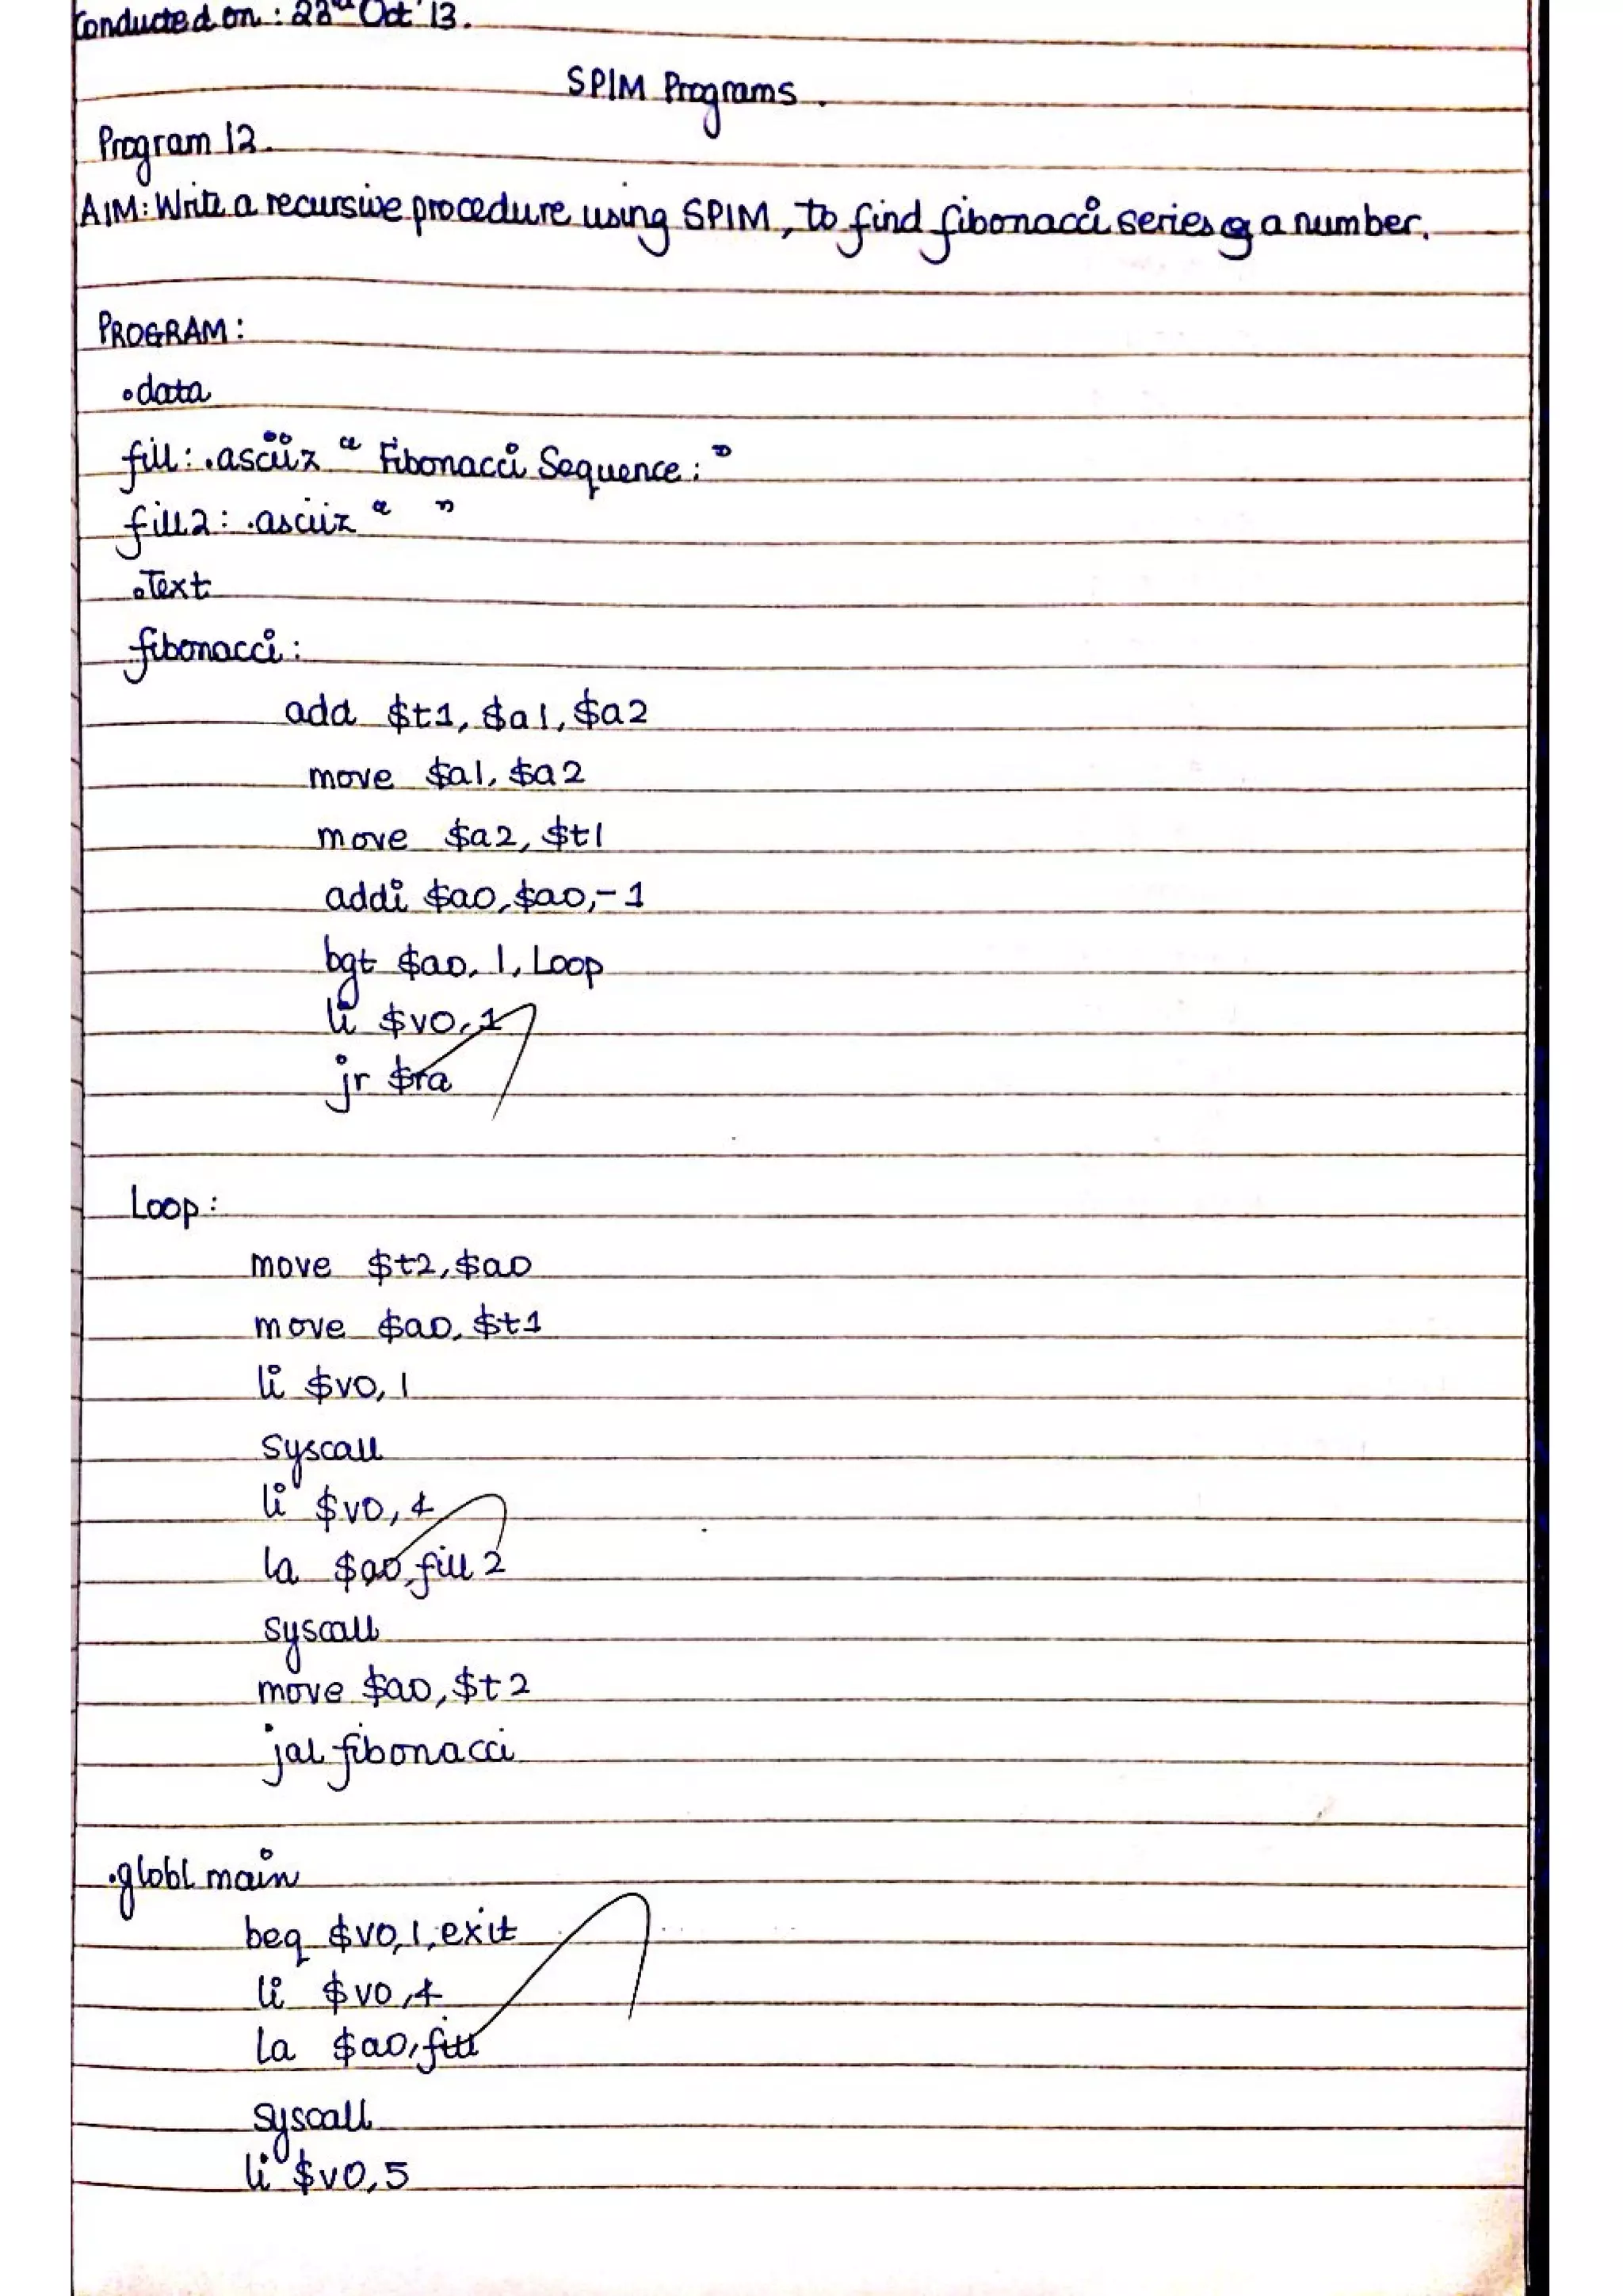 Conducted on : 22nd Oct '13.
SPIM Programs.
Program 12.
AIM: Write a recursive procedure using SPIM, to find fibonacci series of a number.
PROGRAM:
.data
fill: .asciiz " Fibonacci Sequence: "
fill2: .asciiz " "
.Text
fibonacci:
add $t1, $a1, $a2
move $a1, $a2
move $a2, $t1
addi $a0, $a0, -1
bgt $a0, 1, Loop
li $v0, 1
jr $ra
Loop:
move $t2, $a0
move $a0, $t1
li $v0, 1
Syscall
li $v0, 4
la $a0, fill 2
syscall
move $a0, $t2
jal fibonacci
.globl main
beq $v0, 1, exit
li $v0, 4
la $a0, fill
syscall
li $v0, 5